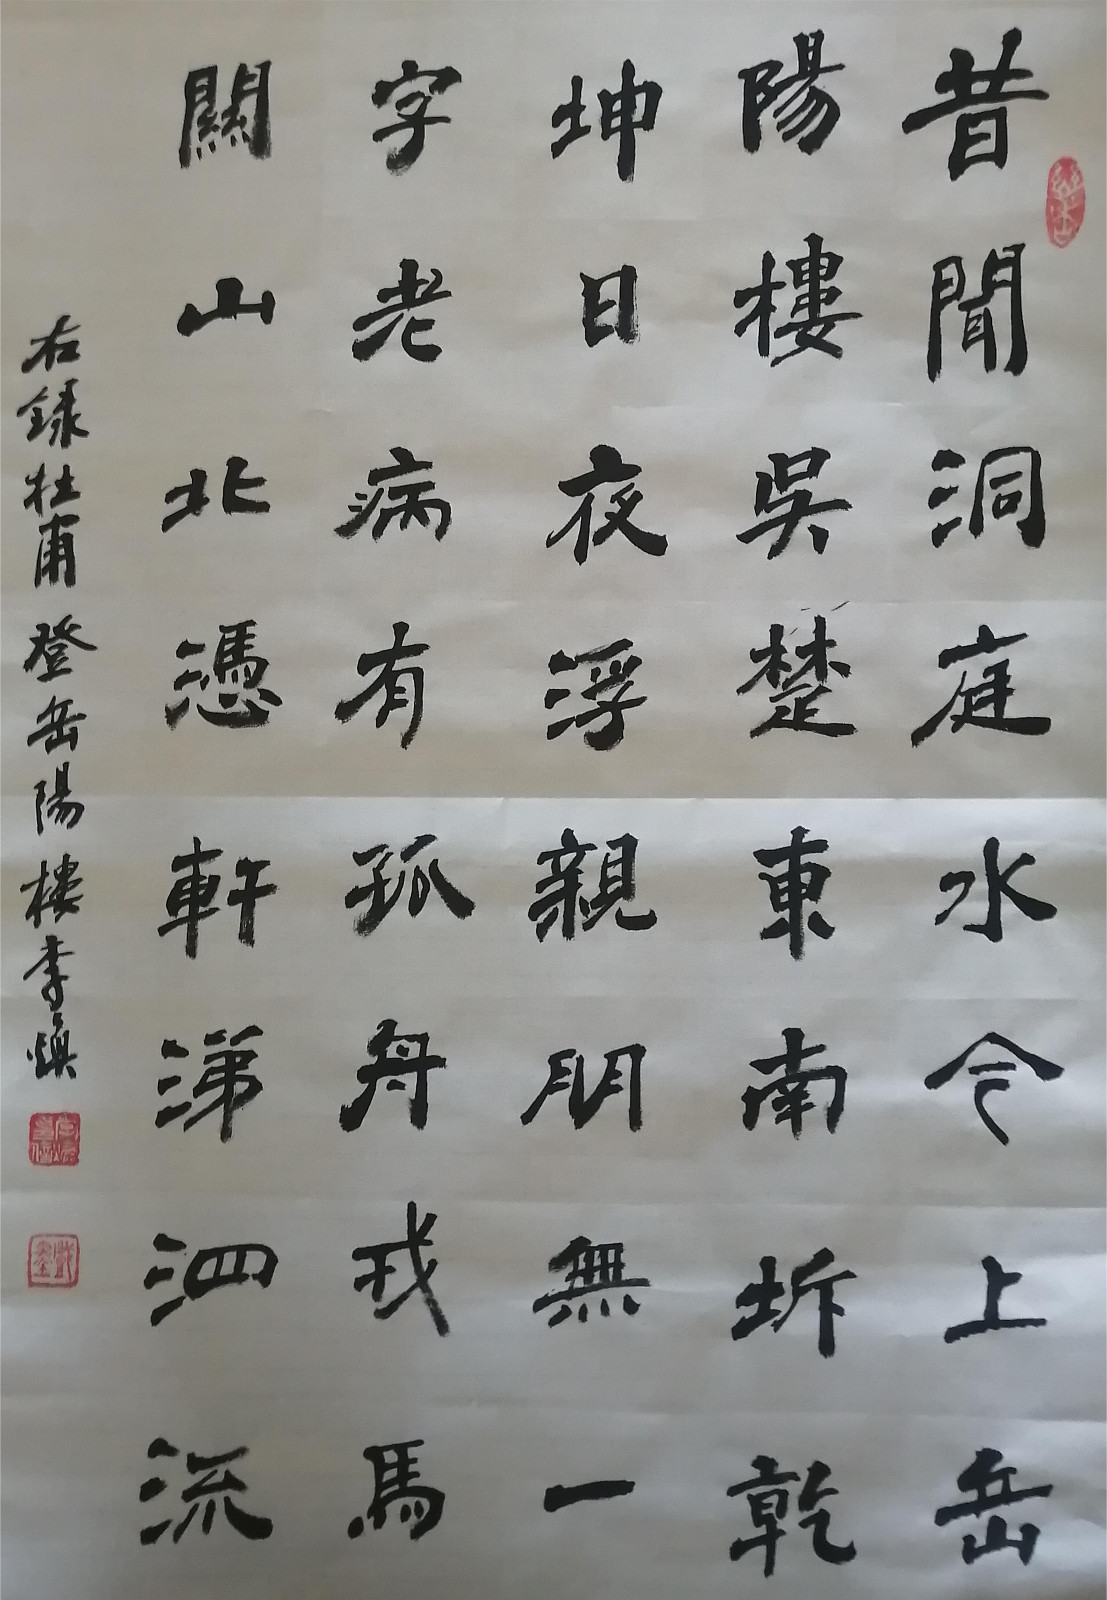 昔聞洞庭水今上岳
陽樓吳楚東南坼乾
坤日夜浮親朋無一
字老病有孤舟戎馬
關山北憑軒涕泗流
右録杜甫登岳陽樓李